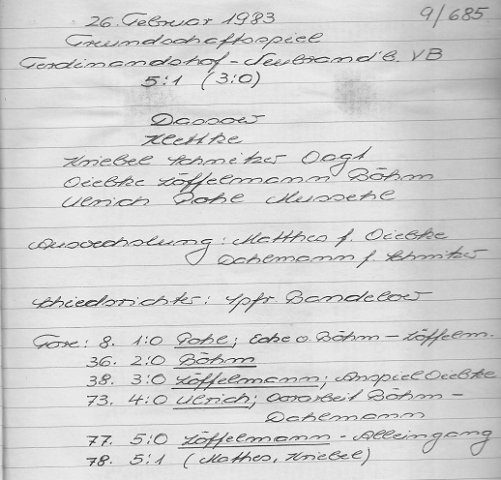 26. Februar 1983
9/685
Freundschaftsspiel
Ferdinandshof - Neubrand'b. VB
5:1 (3:0)
Dassow
Klettke
Kriebel Schmitzer Vogt
Diebke Löffelmann Böhm
Ulrich Pohl
Auswechslung: Matthes f. Diebke
Dahlmann f. Schmitzer
Schiedsrichter: Spfr Bandelow
Tore: 8. 1:0 Ecke v. Böhm - Löffelm.
36. 2:0 Böhm
38. 3:0 Löffelmann; Anspiel Diebke
73. 4:0 Ulrich; Vorarbeit Böhm -
Dahlmann
77. 5:0 Löffelmann - Alleingang
78. 5:1 (Matthes, Kriebel)